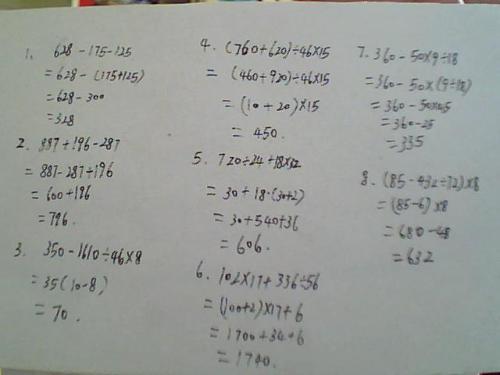 1. 628-175-125
=628-(175+125)
=628-300
=328
2. 887+196-287
=887-287+196
=600+196
=796.
3. 350-1610÷46×8
=35(10-8)
=70.
4. (760+620)÷46×15
=(460+920)÷46×15
=(10+20)×15
=450.
5. 720÷24+18×32
=30+18·(30+2)
=30+540+36
=606.
6. 102×17+336÷56
=(100+2)×17+6
=1700+34+6
=1740.
7. 360-50×9÷18
=360-50×(9÷18)
=360-50×0.5
=360-25
=335
8. (85-432÷72)×8
=(85-6)×8
=680-48
=632